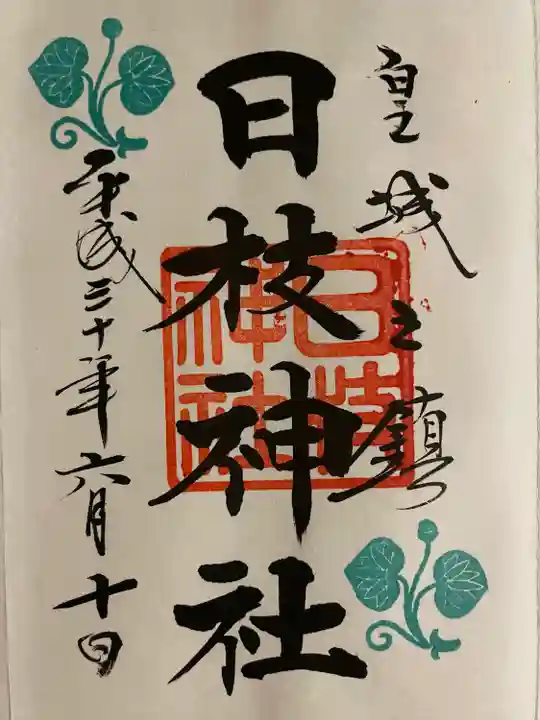 皇城之鎮
日枝神社
平成三十年六月十日
日枝神社